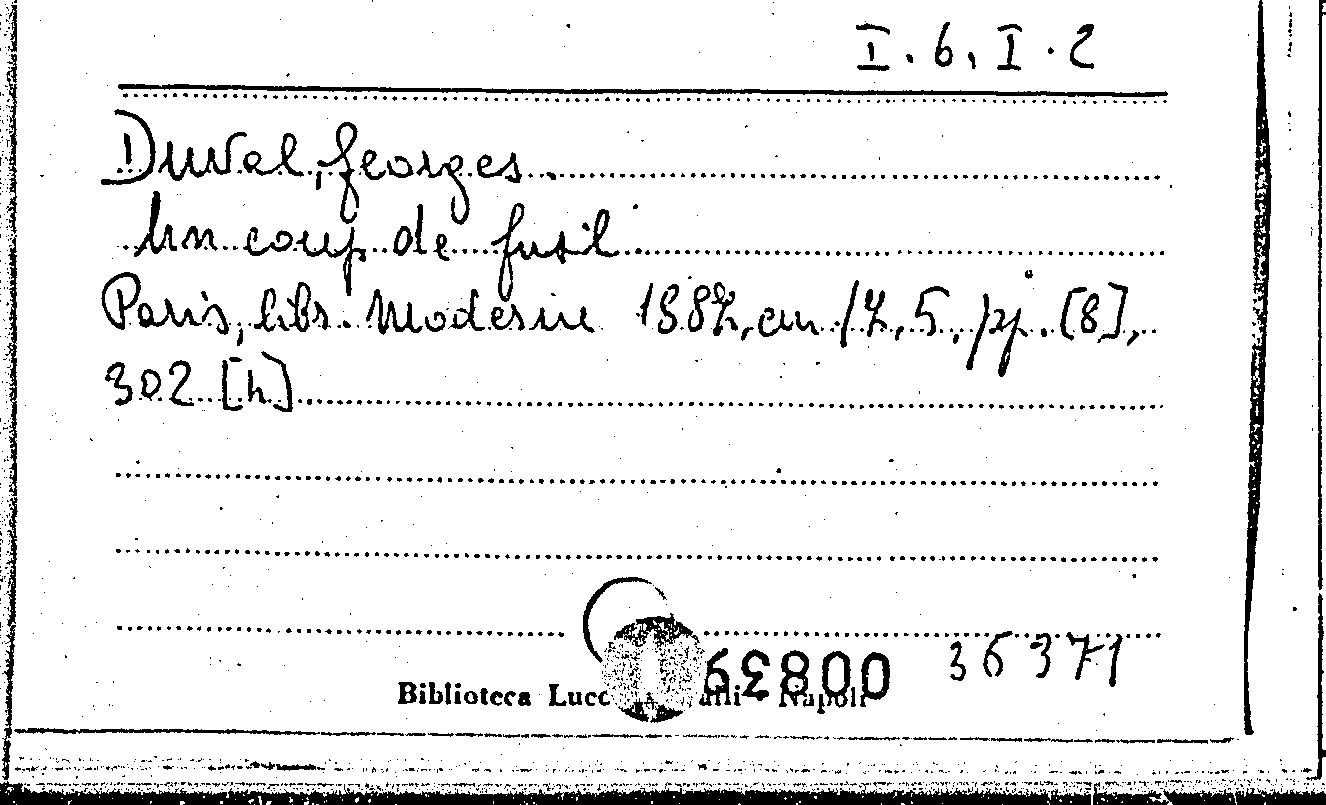 I.6.I.2
Duval, Georges.
Un coup de fusil
Paris, libr. Moderne 1887, cm 17,5, pp. [8],
302 [h]
00839 36371
Biblioteca Lucc alli - Napoli